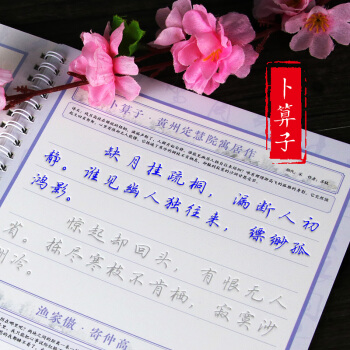 卜算子
卜算子·黄州定慧院寓居作
缺月挂疏桐，漏断人初
静。谁见幽人独往来，缥缈孤
鸿影。
惊起却回头，有恨无人
省。拣尽寒枝不肯栖，寂寞沙
洲冷。
渔家傲·寄仲高